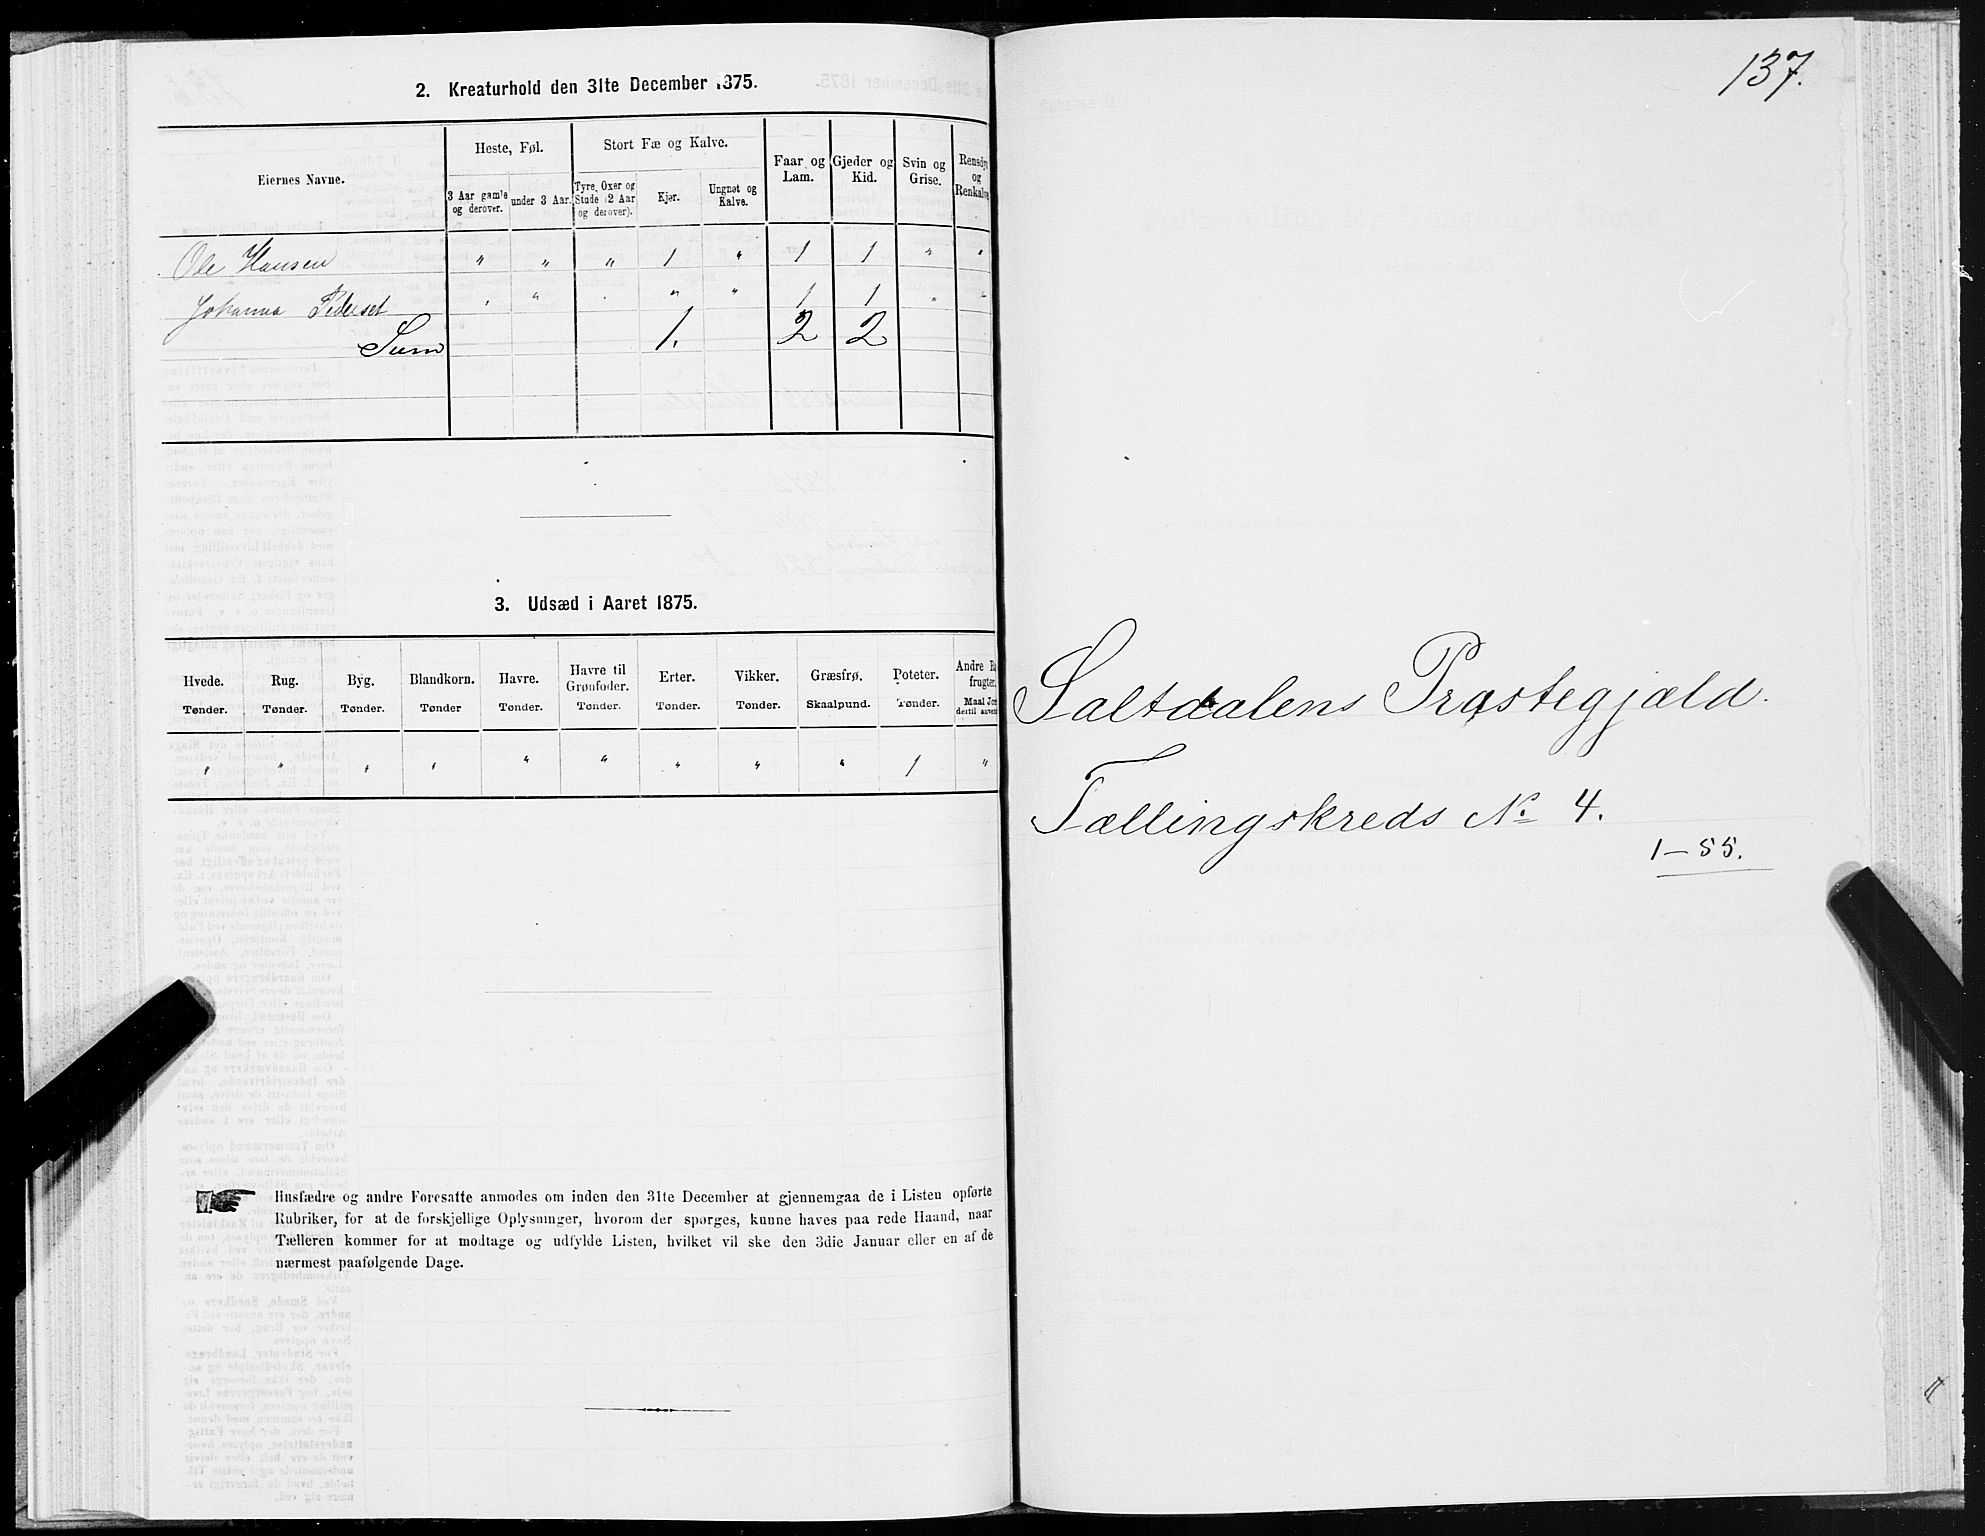 2. Kreaturhold den 31te December 1875.
Eiernes Navne.
Heste, Føl.
Stort Fæ og Kalve.
Faar og Lam.
Gjeder og Kid.
Svin og Grise.
Rensdyr og Renkalve
3 Aar gamle og derover.
under 3 Aar.
Tyre, Oxer og Stude (2 Aar og derover).
Kjør.
Ungnøt og Kalve.
Ole Hansen " " " 1 " 1 1 " "
Johanna Pedersd " " " " 1 1 " "
Sum 1. 2 2
3. Udsæd i Aaret 1875.
Hvede. Rug. Byg. Blandkorn. Havre. Havre til Grønfoder. Erter. Vikker. Græsfrø. Poteter. Andre
frugter
Tønder. Tønder. Tønder. Tønder Tønder. Tønder. Tønder. Tønder. Skaalpund. Tønder. Maal
dertil
" " " " " " " " " 1 "
Husfædre og andre Foresatte anmodes om inden den 31te December at gjennemgaa de i Listen opførte
Rubriker, for at de forskjellige Oplysninger, hvorom der spørges, kunne haves paa rede Haand, naar
Tælleren kommer for at modtage og udfylde Listen, hvilket vil ske den 3die Januar eller en af de
nærmest paafølgende Dage.
137.
Saltdalens Præstegjæld.
Tællingskreds No 4.
1-55.